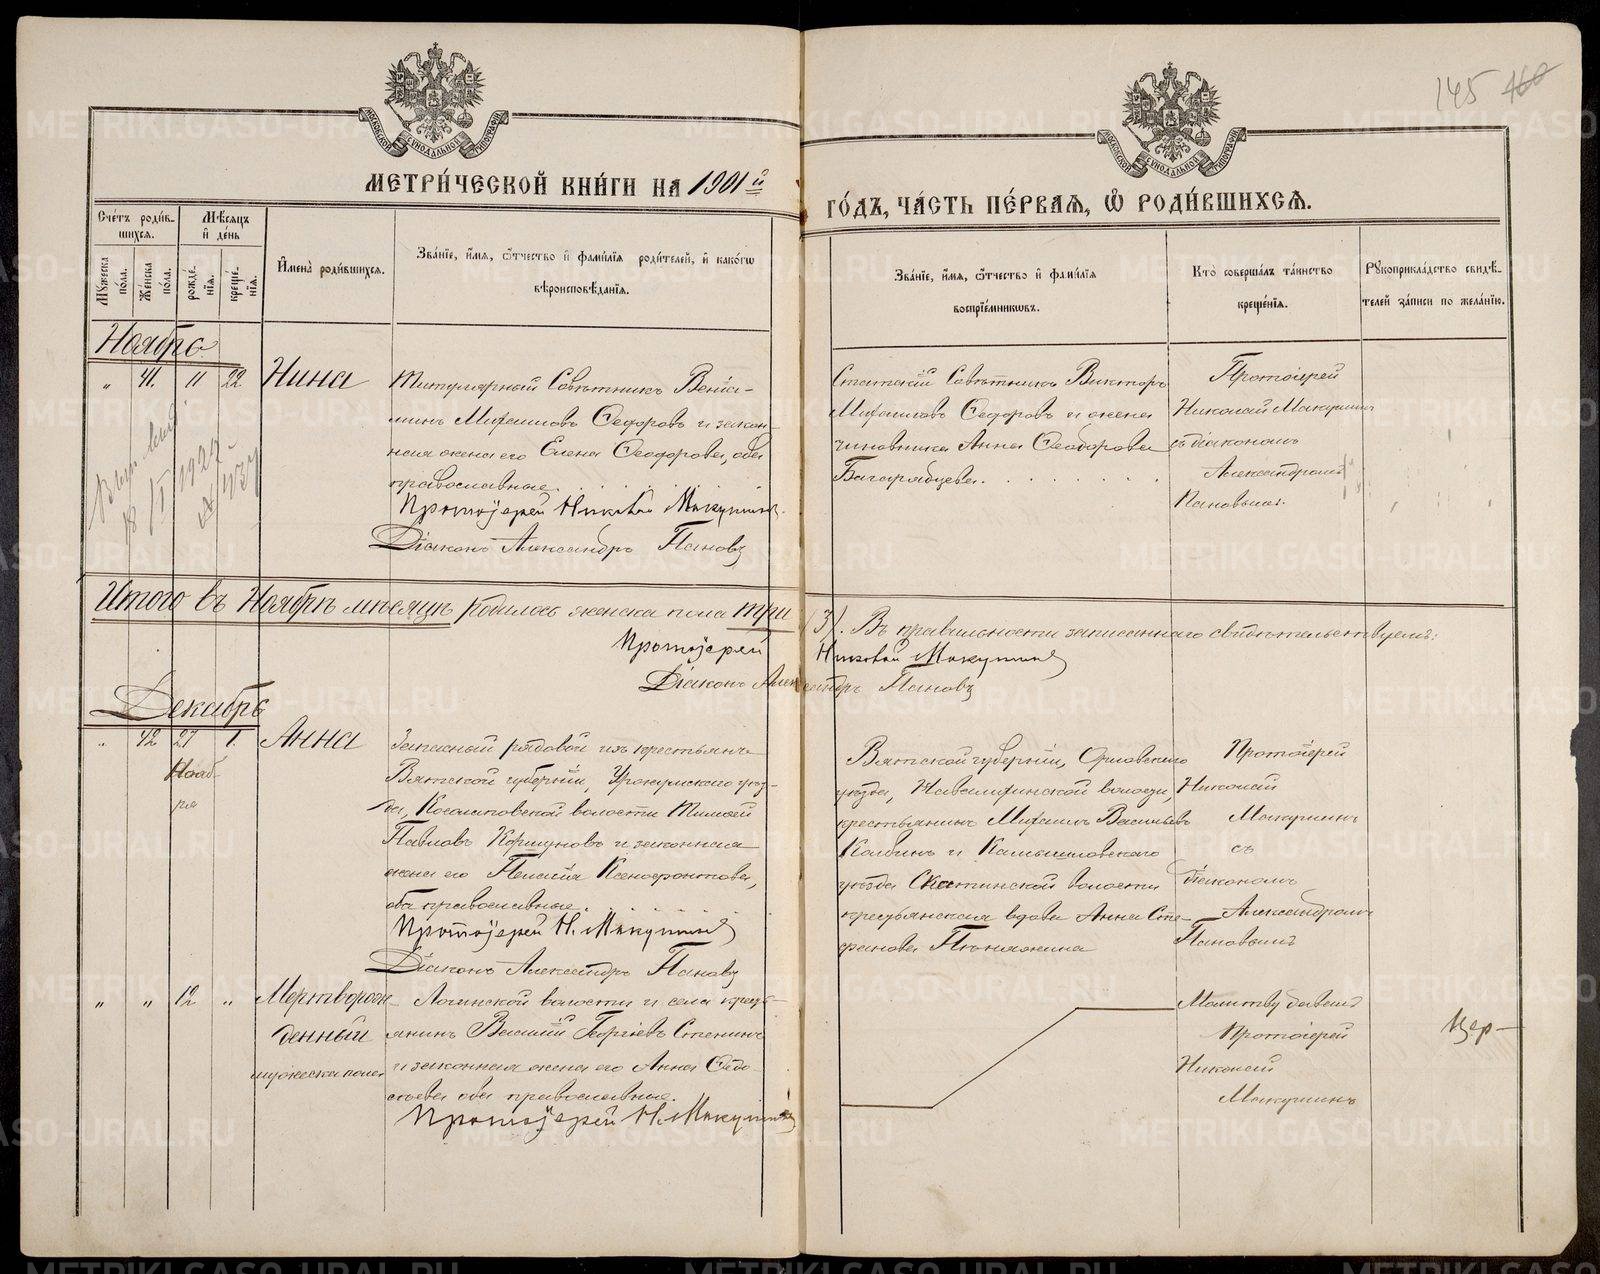 145 160
МОСКОВСКОЙ СѴНОДАЛЬНОЙ ТИПОГРАФІИ
МОСКОВСКОЙ СѴНОДАЛЬНОЙ ТИПОГРАФІИ
МЕТРИ́ЧЕСКОЙ КНИ́ГИ НА 1901й
ГО́ДЪ, ЧА́СТЬ ПЕ́РВАЯ, Ѡ҆ РОДИ́ВШИХСЯ.
Сче́тъ роди́в-
шихся.
Мѣ́сяцъ
и҆ де́нь
Мꙋ́жеска
по́ла.
Же́нска
по́ла.
рожде́-
нїя.
креще́-
нїя.
И҆мена̀ роди́вшихся.
Зва́нїе, и҆́мя, ѻ҆́тчество и҆ фами́лїя роди́телей, и҆ како́гѡ
вѣроисповѣ́данїя.
Зва́нїе, и҆́мя, ѻ҆́тчество и҆ фами́лїя
воспрїе́мникѡвъ.
Кто̀ соверша́лъ та́инство
креще́нїя.
Рꙋкоприкла́дство свидѣ́-
телей за́писи по жела́нїю.
Ноябрь
„ 41. 11 22 Нина
Титулярный Совѣтникъ Веніа-
минъ Михаиловъ Ѳедоровъ и закон-
ная жена его Елена Ѳеодорова, оба
православные.
Протоіерей Николай Макушинъ.
Діаконъ Александръ Пановъ
Статскій Совѣтникъ Викторъ
Михаиловъ Ѳедоровъ и жена
чиновника Анна Ѳеодорова
Багарядцева.
Протоіерей
Николай Макушинъ
съ діакономъ
Александромъ
Пановымъ.
18/I 1927
Итого въ Ноябрѣ мѣсяцѣ родилось женска пола три (3). Въ правильности записаннаго свидѣтельствуемъ:
Протоіерей Николай Макушинъ
Діаконъ Александръ Пановъ
Декабрь
„ 42 27 1. Анна
Нояб-
ря
Запасный рядовой изъ крестьянъ
Вятской губерніи, Уржумскаго уѣз-
да, Косолаповской волости Тимоѳей
Павловъ Коршуновъ и законная
жена его Пелагія Ксенофонтова,
оба православные.
Протоіерей Н. Макушинъ
Діаконъ Александръ Пановъ
Вятской губерніи, Орловскаго
уѣзда, волости,
крестьянинъ Михаилъ Васильевъ
Колбинъ и Камышловскаго
уѣзда Скатинской волости
крестьянская вдова Анна Сте-
фанова
Протоіерей
Николай
Макушинъ
съ
діакономъ
Александромъ
Пановымъ
„ „ 12 „ Мертворож-
денный
мужеска пола
Логиновской волости и села кресть-
янинъ Василій Георгіевъ Стенинъ
и законная жена его Анна Ѳедо-
сѣева оба православные.
Протоіерей Н. Макушинъ
Молитву давалъ
Протоіерей
Николай
Макушинъ
Цер-
METRIKI.GASO-URAL.RU